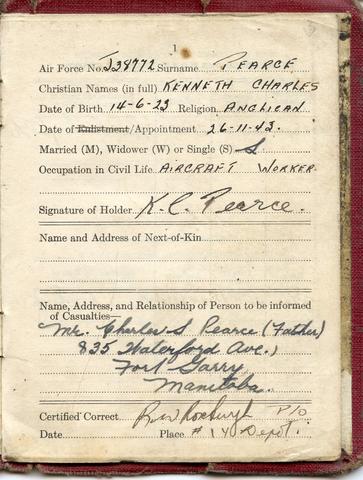 1
Air Force No. J38772 Surname PEARCE
Christian Names (in full) KENNETH CHARLES
Date of Birth 14-6-23 Religion ANGLICAN
Date of Enlistment/Appointment 26-11-43.
Married (M), Widower (W) or Single (S) S
Occupation in Civil Life AIRCRAFT WORKER.
Signature of Holder K. C. Pearce.
Name and Address of Next-of-Kin
Name, Address, and Relationship of Person to be informed
of Casualties—
Mr. Charles S Pearce (Father)
835 Waterford Ave.,
Fort Garry
Manitoba.
Certified Correct RW Roxburgh P/O
Date Place # 14 Depot.